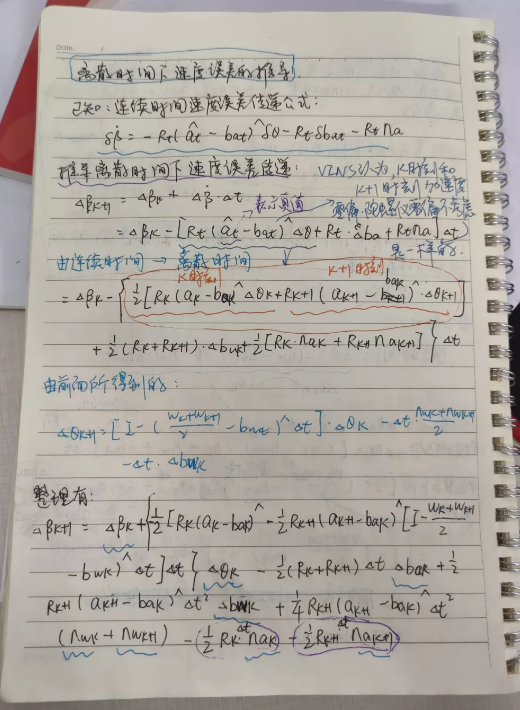 Date. /
离散时间下速度误差的推导
已知:连续时间速度误差传递公式:
δβ̇ = -Rt(ât - bat)^δθ - Rtδbat - Rt na
推导离散时间下速度误差传递: VINS认为,K时刻和
Δβk+1 = Δβk + Δβ̇·Δt →表示真值 K+1时刻加速度
= Δβk - [Rt(ât - bat)^Δθ + Rt·Δba + Rt na]Δt 零偏,陀螺仪零偏不变
由连续时间→离散时间 是一样的.
K时刻 K+1时刻
= Δβk - {½[Rk(ak - bak)^Δθk + Rk+1(ak+1 - bak)^·Δθk+1]
+ ½(Rk+Rk+1)·Δbak + ½[Rk·nak + Rk+1 nak+1]}Δt
由前面所得到的:
Δθk+1 = [I - (wk+wk+1/2 - bwk)^Δt]·Δθk - Δt·nwk+nwk+1/2
-Δt·Δbwk
整理有:
Δβk+1 = Δβk + {-½[Rk(ak - bak)^ - ½Rk+1(ak+1 - bak)^[I - wk+wk+1/2
- bwk)^Δt]Δt}Δθk - ½(Rk+Rk+1)Δt Δbak + ½
Rk+1(ak+1 - bak)^Δt² Δbwk + ¼Rk+1(ak+1 - bak)^Δt²
(nwk + nwk+1) - ½Rk Δt nak - ½Rk+1 Δt nak+1